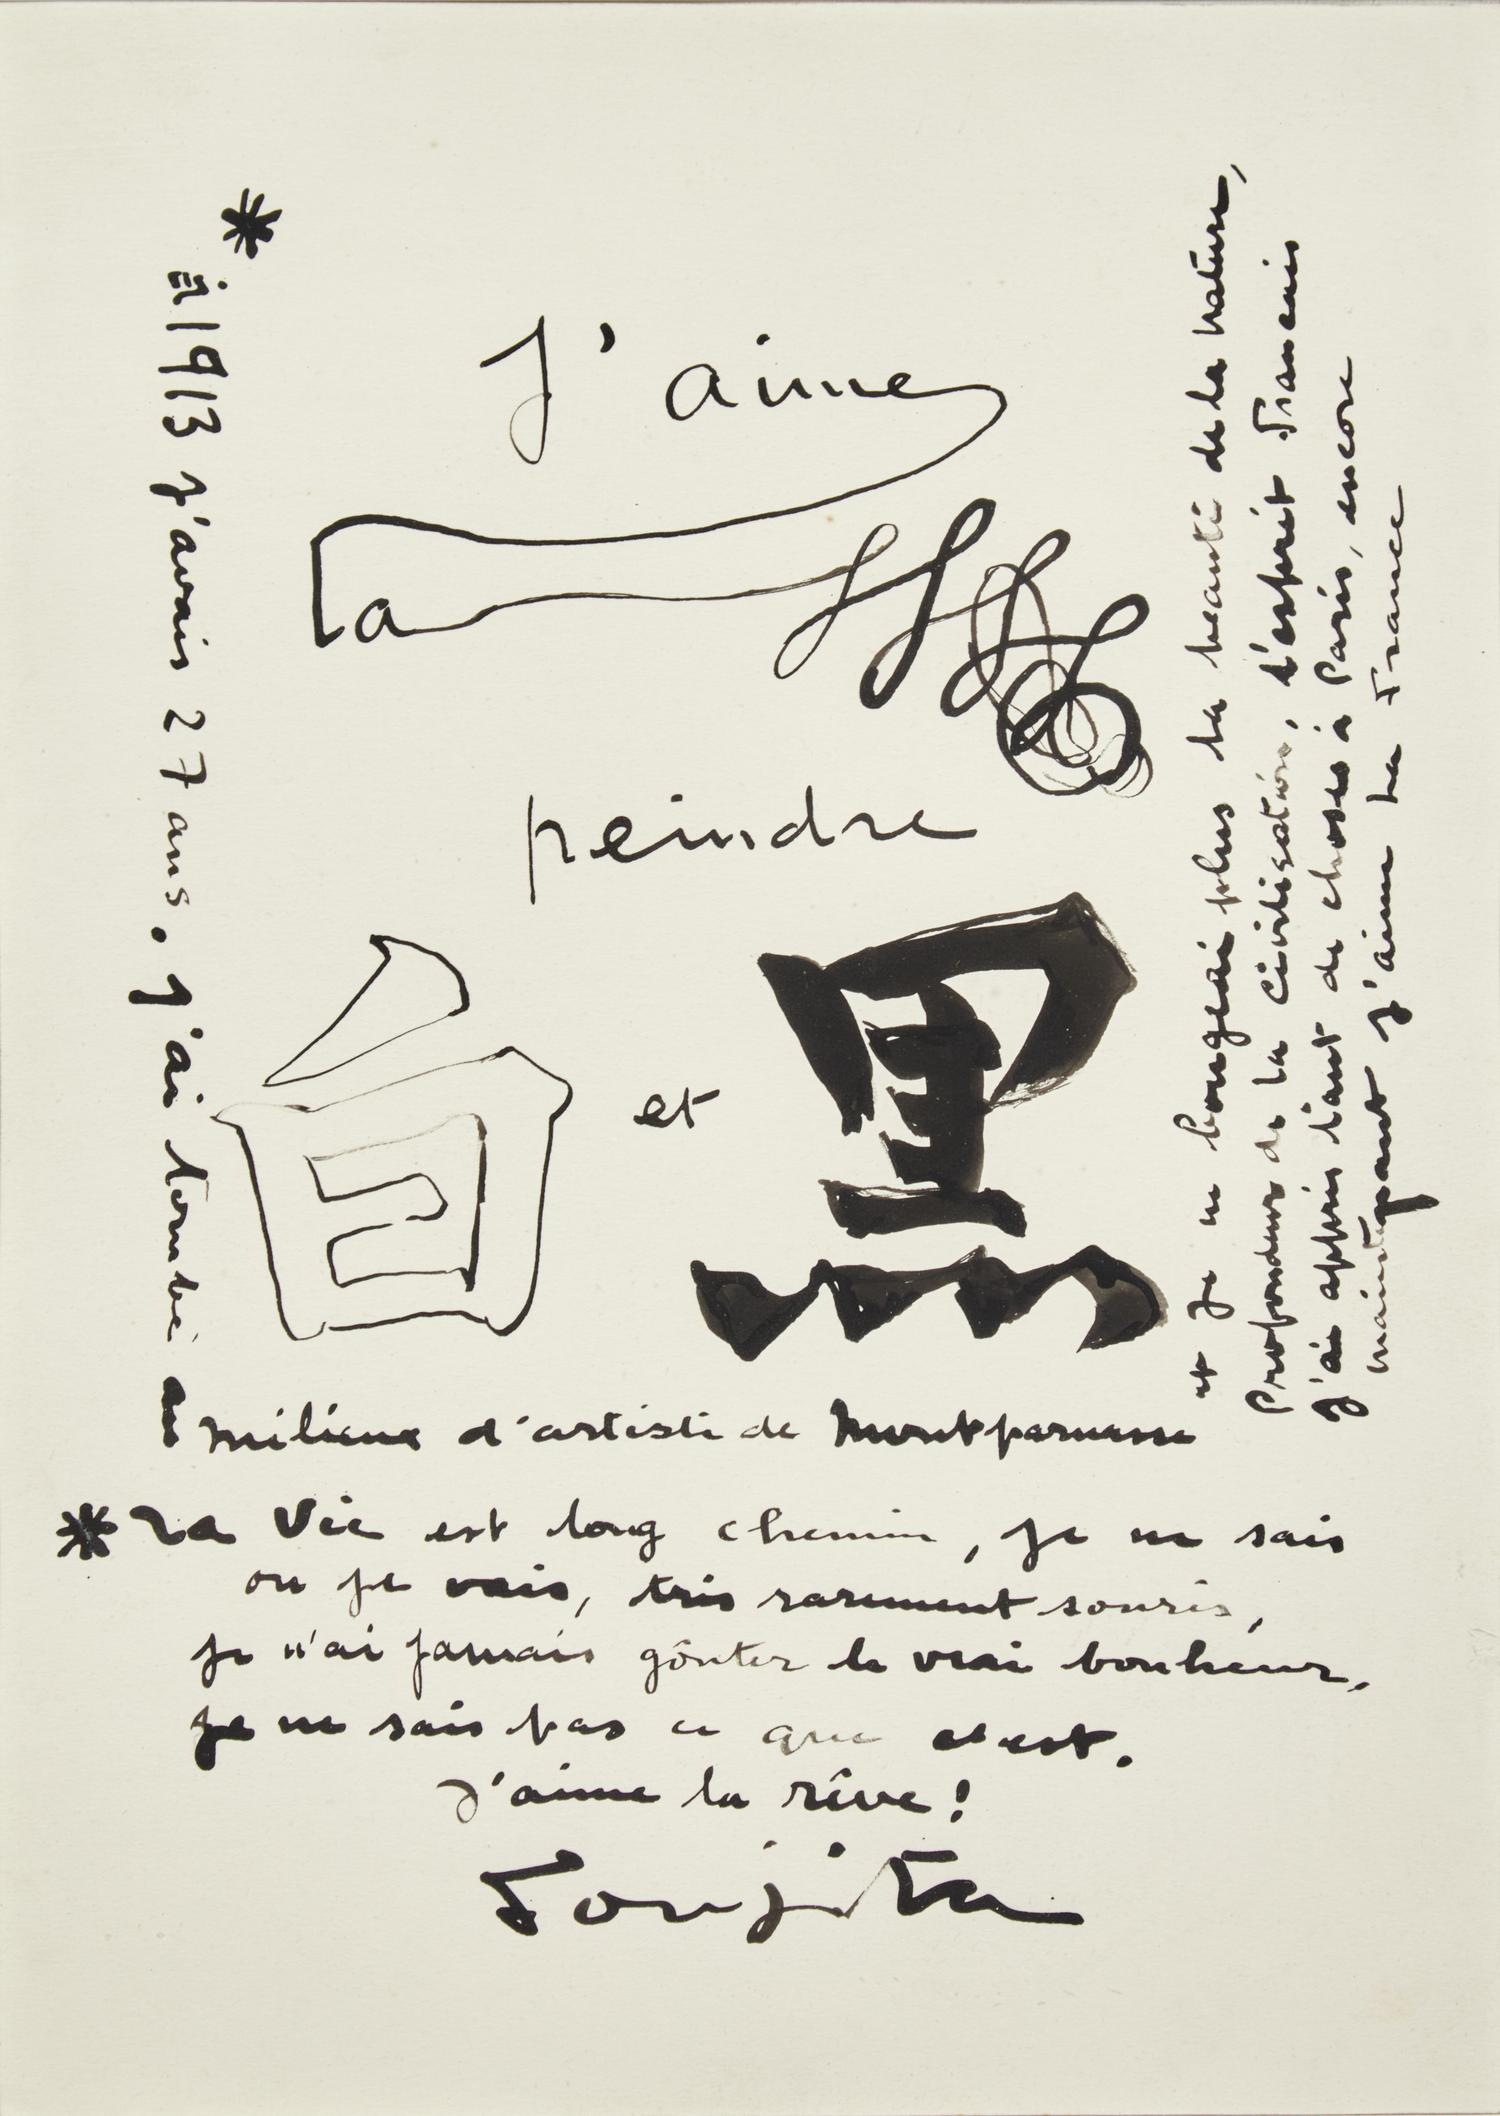 J'aime
la
peindre
白 et 黒
* à 1913 j'avais 27 ans. J'ai tombé au
milieux d'artiste de Montparnasse
et je ne bougeai plus la beauté de la nature,
Profondeur de la civilisation, l'esprit Francais
J'ai appris tant de choses à Paris, encore
maintenant J'aime la France
* La Vie est long chemin, je ne sais
ou je vais, très rarement souris,
je n'ai jamais goûter le vrai bonheur,
je ne sais pas ce que c'est.
J'aime la rêve!
Foujita